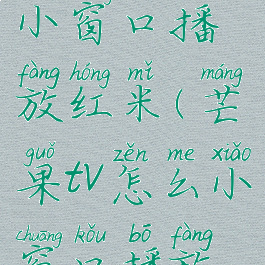 小窗口播
fàng hóng mǐ máng
放红米(芒
guǒ zěn me xiǎo
果tv怎么小
chuāng kǒu bō fàng
窗口播放